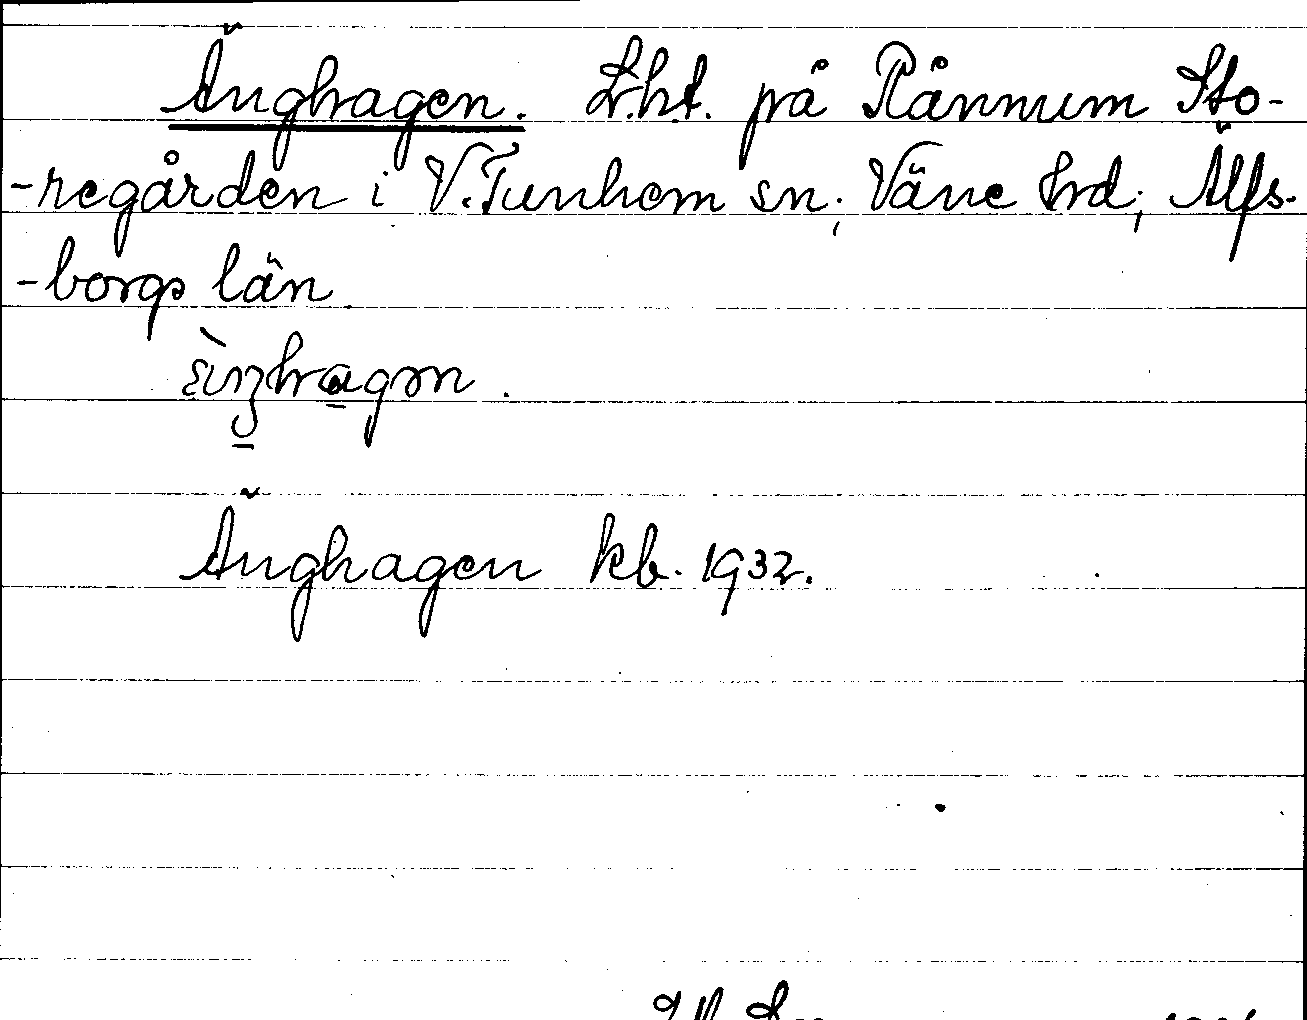 Änghagen. Lht. på Rånnum Sto-
-regården i V. Tunhem sn; Väne hrd; Älfs-
-borgs län.
Änghagen kb. 1932.